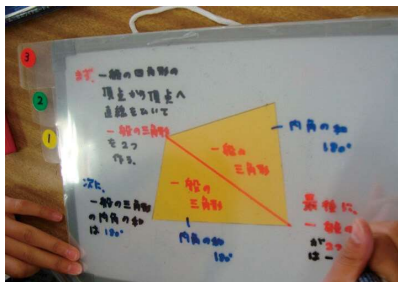 3
2
1
まず、一般の四角形の
頂点から頂点へ
直線をひいて
一般の三角形
を2つ
作る。
一般の
三角形
一般の
三角形
内角の和
180°
内角の和
180°
次に、
一般の三角形
の内角の和
は180°
最後に、
一般の
が2つ
は一